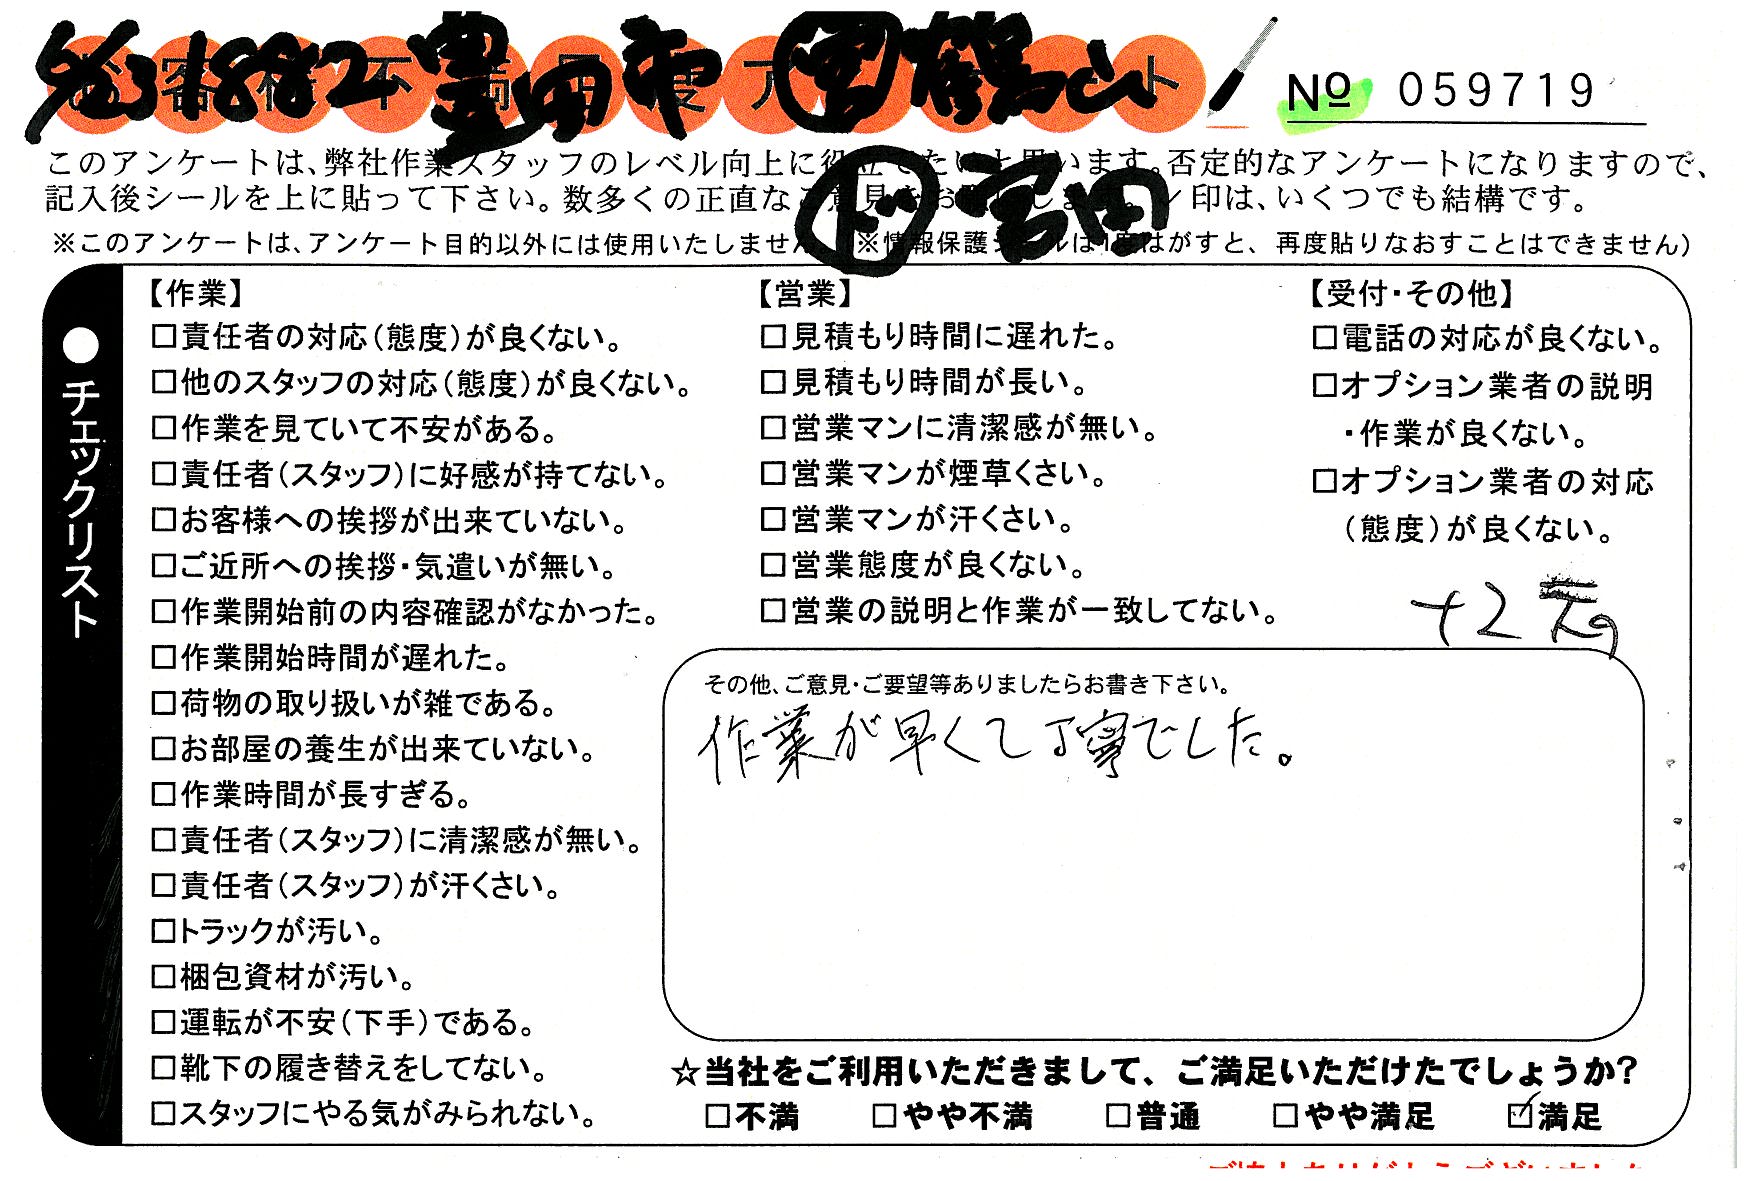 6/23 1882 豊田市 営 鶴山
No 059719
このアンケートは、弊社作業スタッフのレベル向上に役立てたいと思います。否定的なアンケートになりますので、
記入後シールを上に貼って下さい。数多くの正直なご意見をお
印は、いくつでも結構です。
ド 宮田
※このアンケートは、アンケート目的以外には使用いたしません
※情報保護シールは1度はがすと、再度貼りなおすことはできません)
●チェックリスト
【作業】
□責任者の対応(態度)が良くない。
□他のスタッフの対応(態度)が良くない。
□作業を見ていて不安がある。
□責任者(スタッフ)に好感が持てない。
□お客様への挨拶が出来ていない。
□ご近所への挨拶・気遣いが無い。
□作業開始前の内容確認がなかった。
□作業開始時間が遅れた。
□荷物の取り扱いが雑である。
□お部屋の養生が出来ていない。
□作業時間が長すぎる。
□責任者(スタッフ)に清潔感が無い。
□責任者(スタッフ)が汗くさい。
□トラックが汚い。
□梱包資材が汚い。
□運転が不安(下手)である。
□靴下の履き替えをしてない。
□スタッフにやる気がみられない。
【営業】
□見積もり時間に遅れた。
□見積もり時間が長い。
□営業マンに清潔感が無い。
□営業マンが煙草くさい。
□営業マンが汗くさい。
□営業態度が良くない。
□営業の説明と作業が一致してない。
【受付・その他】
□電話の対応が良くない。
□オプション業者の説明
・作業が良くない。
□オプション業者の対応
(態度)が良くない。
その他、ご意見・ご要望等ありましたらお書き下さい。
作業が早くて丁寧でした。
☆当社をご利用いただきまして、ご満足いただけたでしょうか?
□不満 □やや不満 □普通 □やや満足 ☑満足